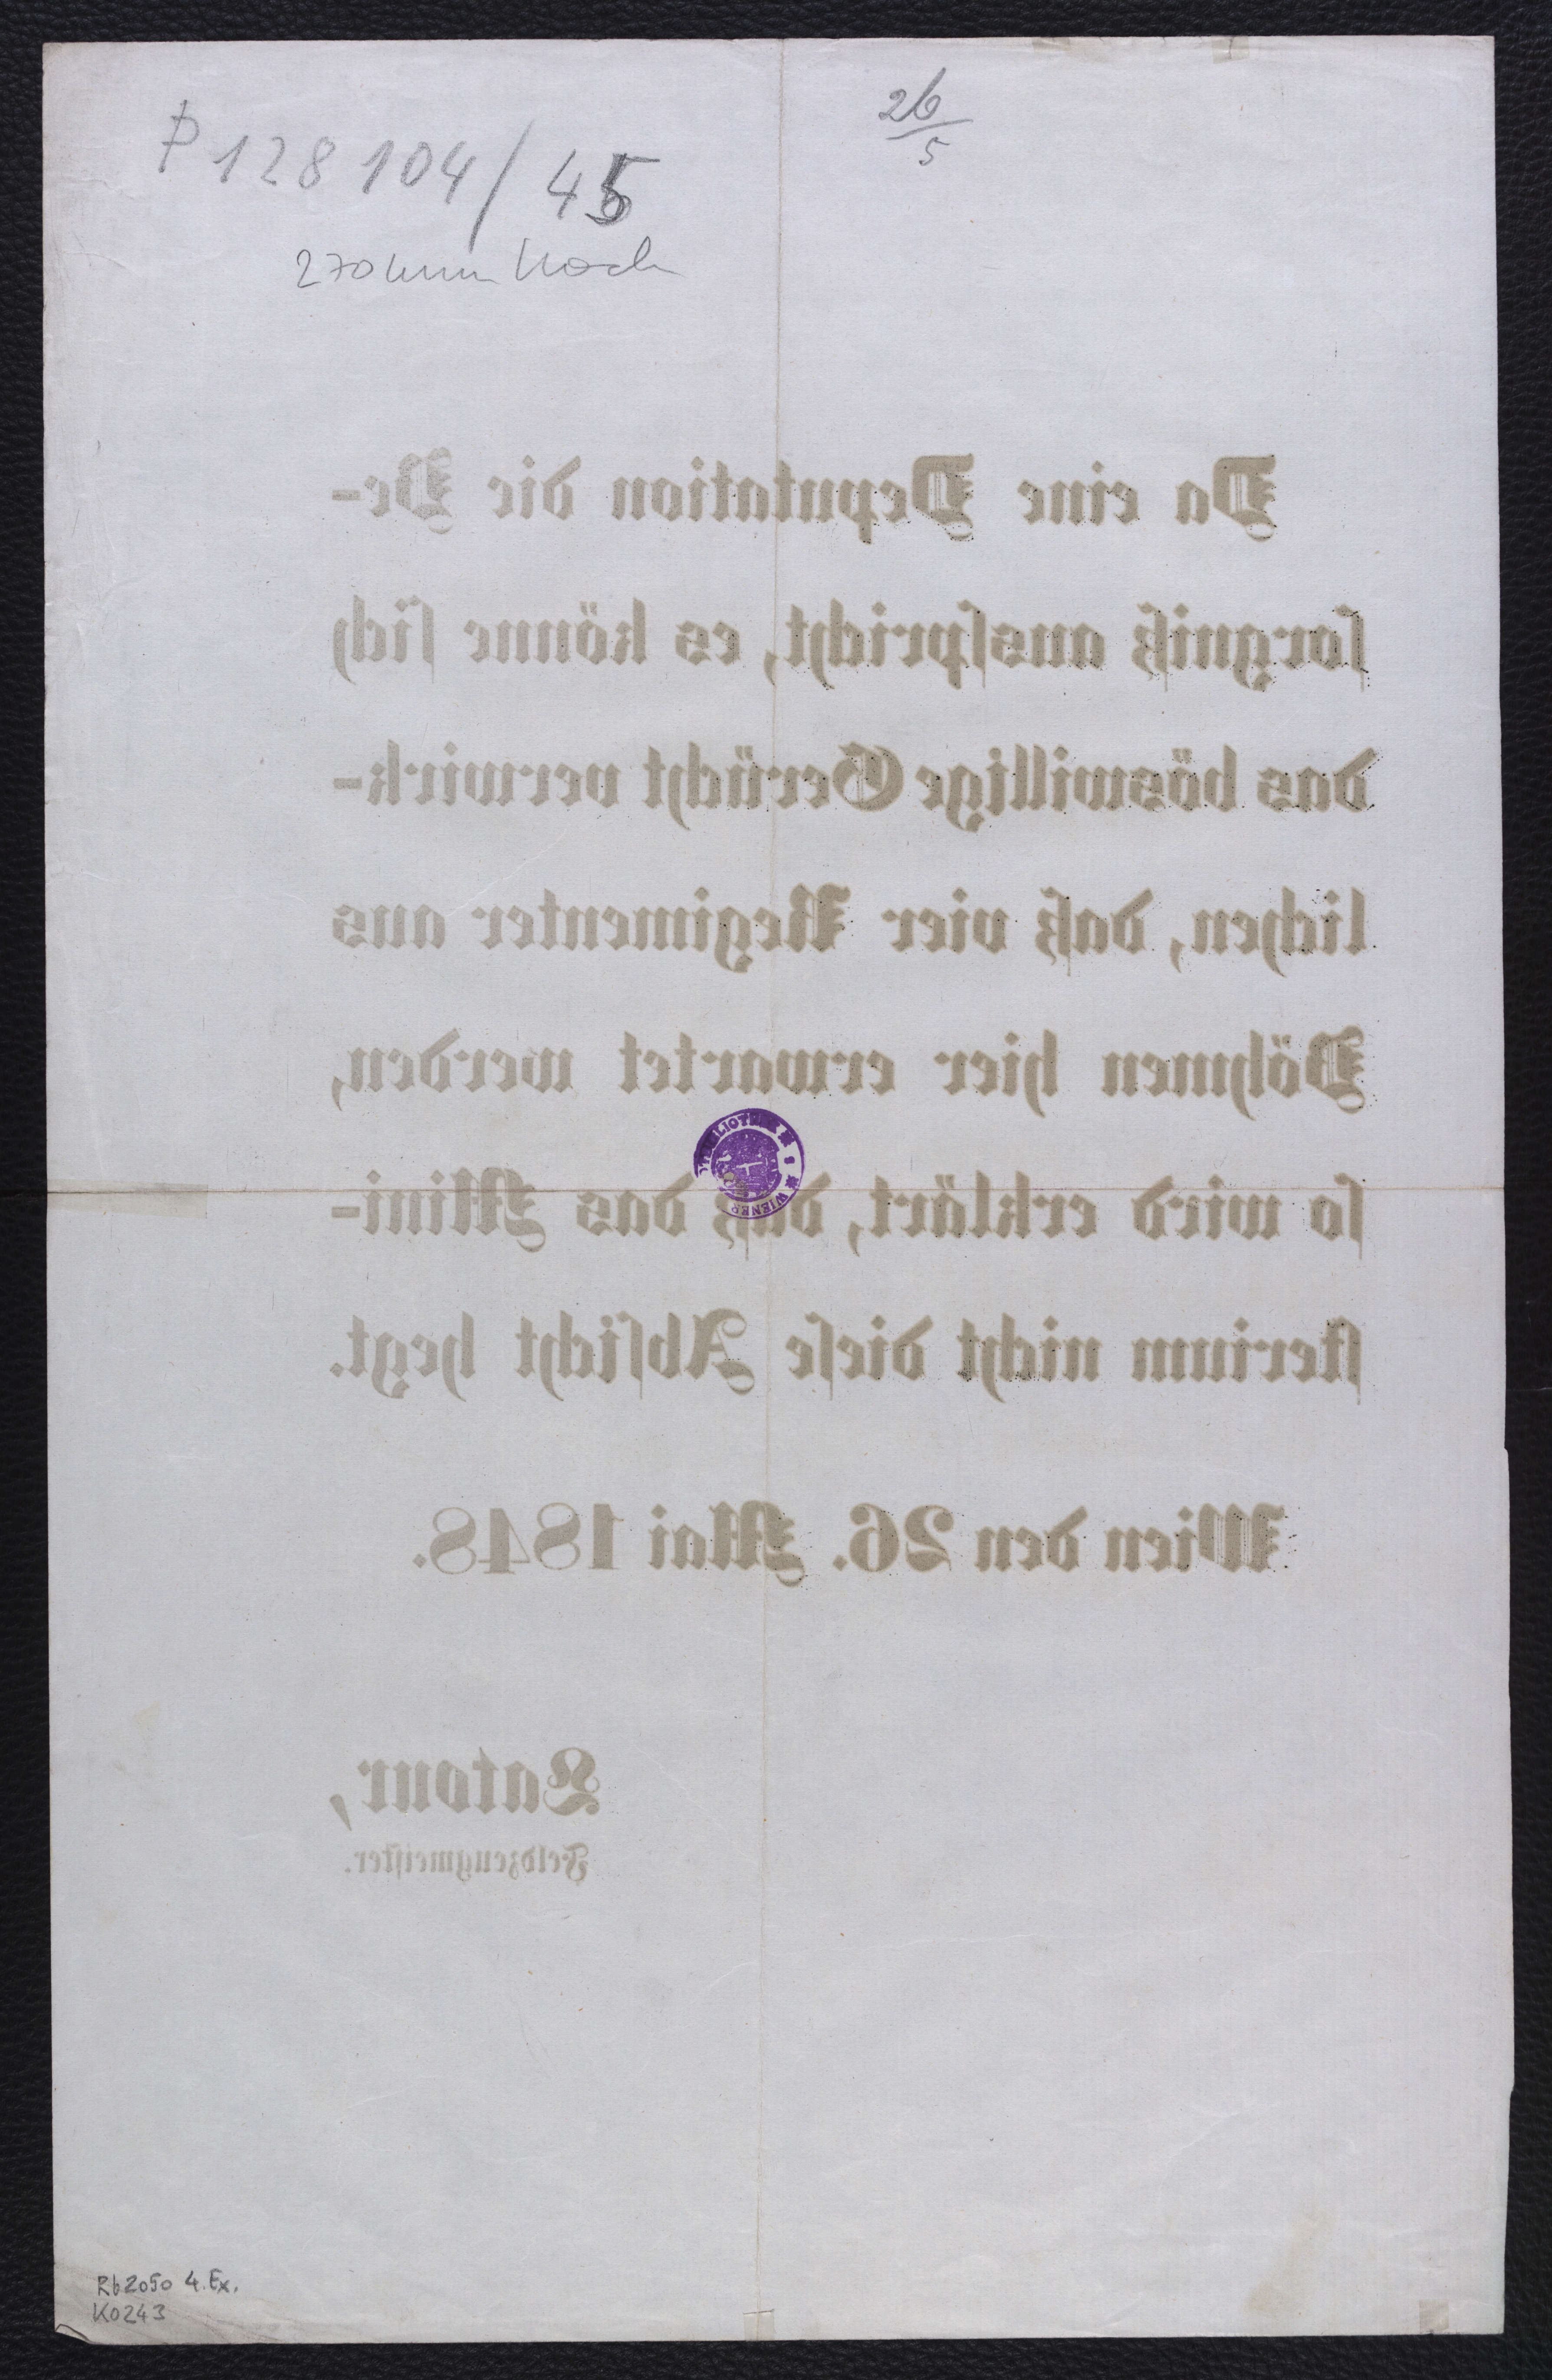 P 128 104 / 45
26
5
270 mm hoch
Da eine Deputation die Be-
ſorgniß ausſpricht, es könne ſich
das böswillige Gerücht verwirk-
lichen, daß vier Regimenter aus
Böhmen hier erwartet werden,
ſo wird erklärt, daß das Mini-
ſterium nicht dieſe Abſicht hegt.
Wien den 26. Mai 1848.
Latour,
Feldzeugmeiſter.
Rb2050 4.Ex.
K0243